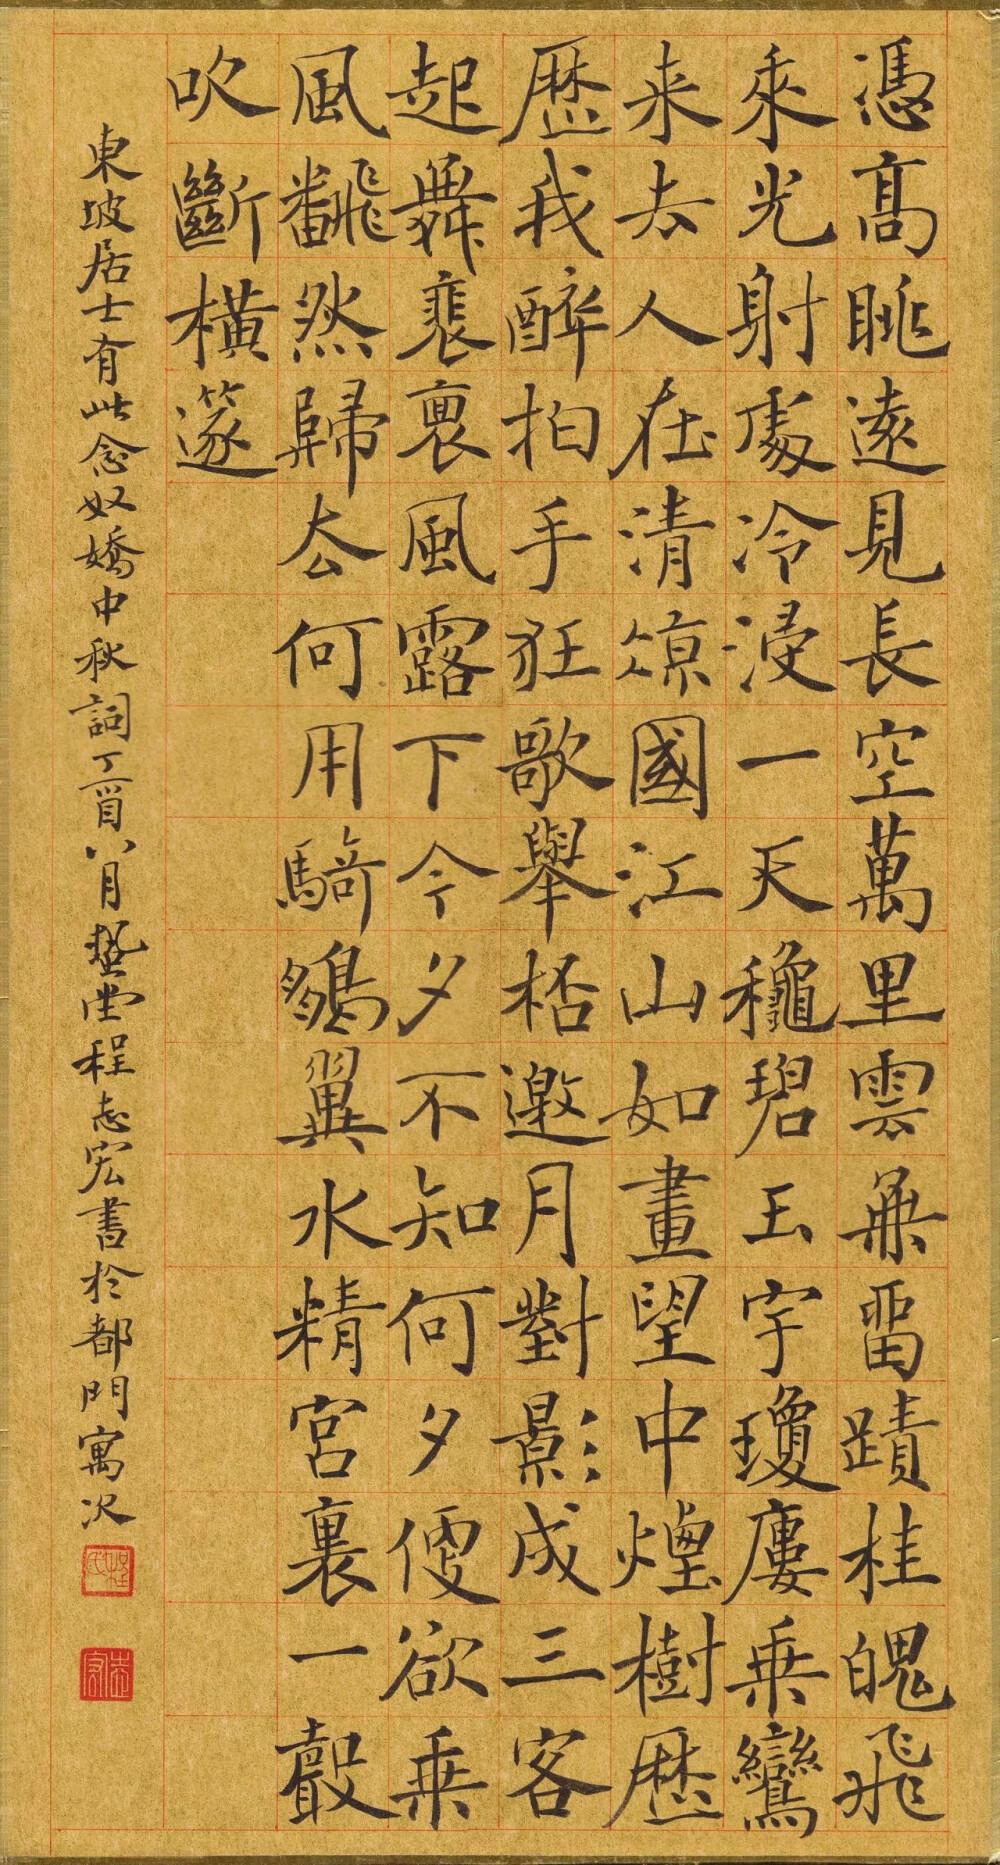 憑高眺遠見長空萬里雲無畱蹟桂魄飛
來光射處冷浸一天龝碧玉宇瓊廔乗鸞
来去人在清涼國江山如畫望中煙樹歷
歷我醉拍手狂歌舉桮邀月對影成三客
起舞裵裏風露下今夕不知何夕便欲乗
風飜然歸去何用騎鵬翼水精宮裏一聲
吹斷橫篴
東坡居士有此念奴嬌中秋詞丁酉八月蟄堂程志宏書於都門寓次